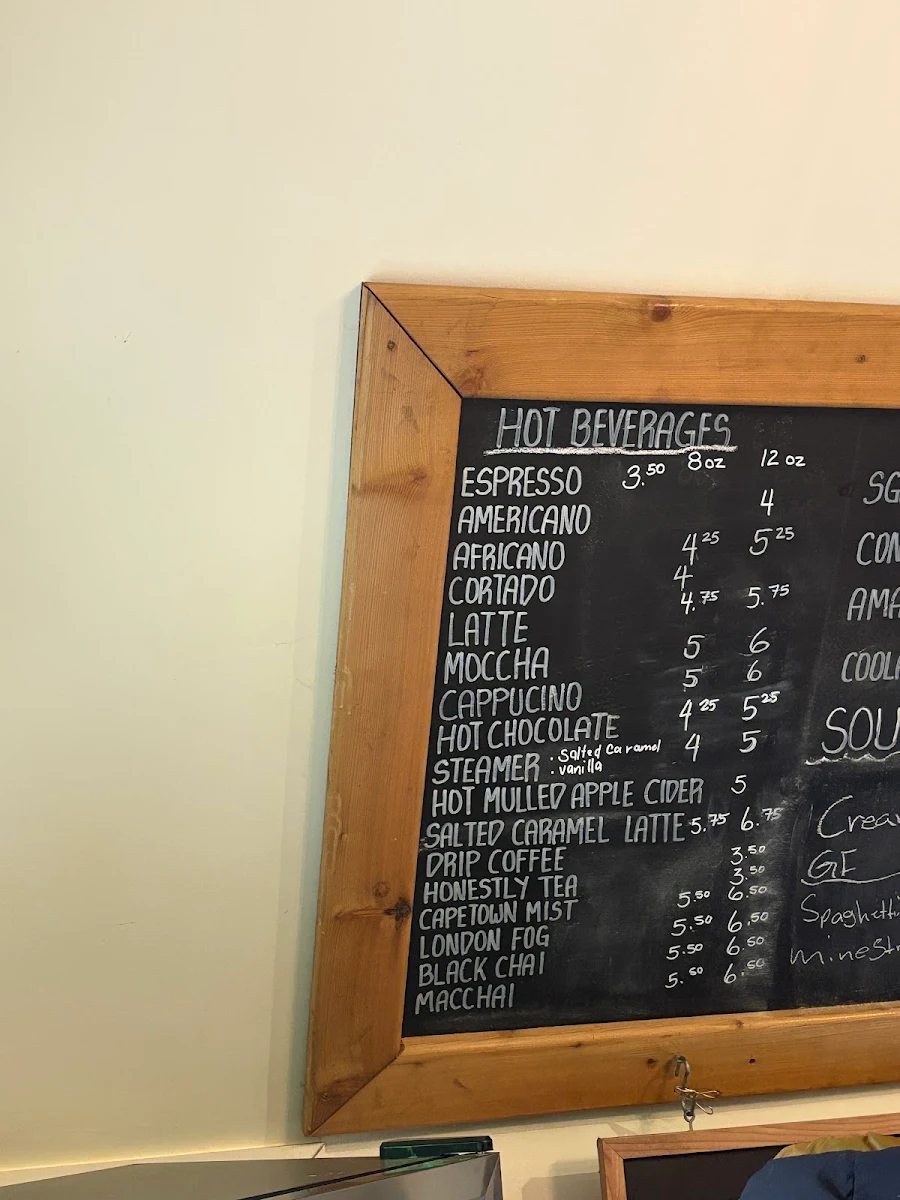 HOT BEVERAGES
8oz 12oz
ESPRESSO 3.50
AMERICANO 4
AFRICANO 4 25 5 25
CORTADO 4
LATTE 4.75 5.75
MOCCHA 5 6
CAPPUCINO 5 6
HOT CHOCOLATE 4 25 5 25
STEAMER : Salted Caramel 4 5
: vanilla
HOT MULLED APPLE CIDER 5
SALTED CARAMEL LATTE 5.75 6.75
DRIP COFFEE 3.50
HONESTLY TEA 3.50
CAPETOWN MIST 5.50 6.50
LONDON FOG 5.50 6.50
BLACK CHAI 5.50 6.50
MACCHAI 5.50 6.50
SG
CON
AMA
COOL
SOU
Crea
GF
Spaghetti
mineSt